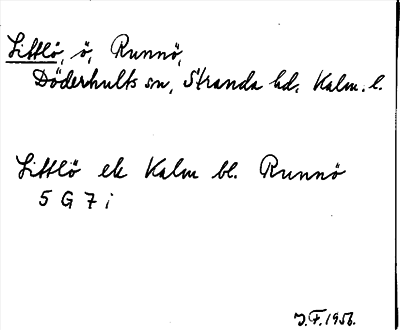 Littlö, ö, Runnö,
Döderhults sn, Stranda hd, Kalm. l.
Littlö ek Kalm bl. Runnö
5 G 7 i
J.F. 1956.